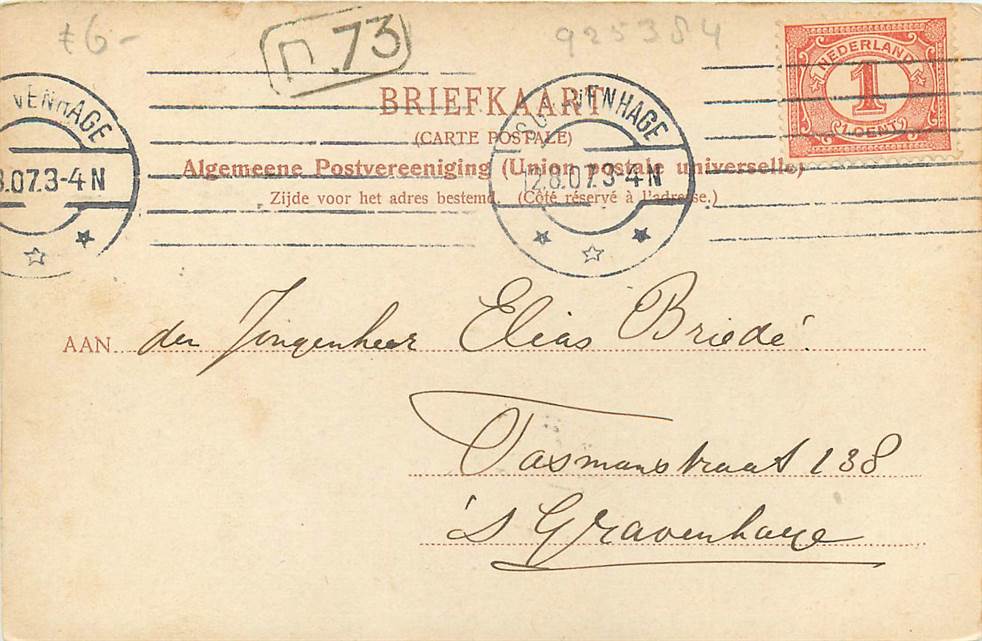 £6-
925384
П.73
NEDERLAND
1
1 CENT
BRIEFKAART
(CARTE POSTALE)
Algemeene Postvereeniging (Union postale universelle)
Zijde voor het adres bestemd. (Côté réservé à l'adresse.)
VENHAGE
8.07.3-4N
VENHAGE
12.8.07.3-4N
AAN den Jongenheer Elias Briedé.
Tasmanstraat 138
's Gravenhage